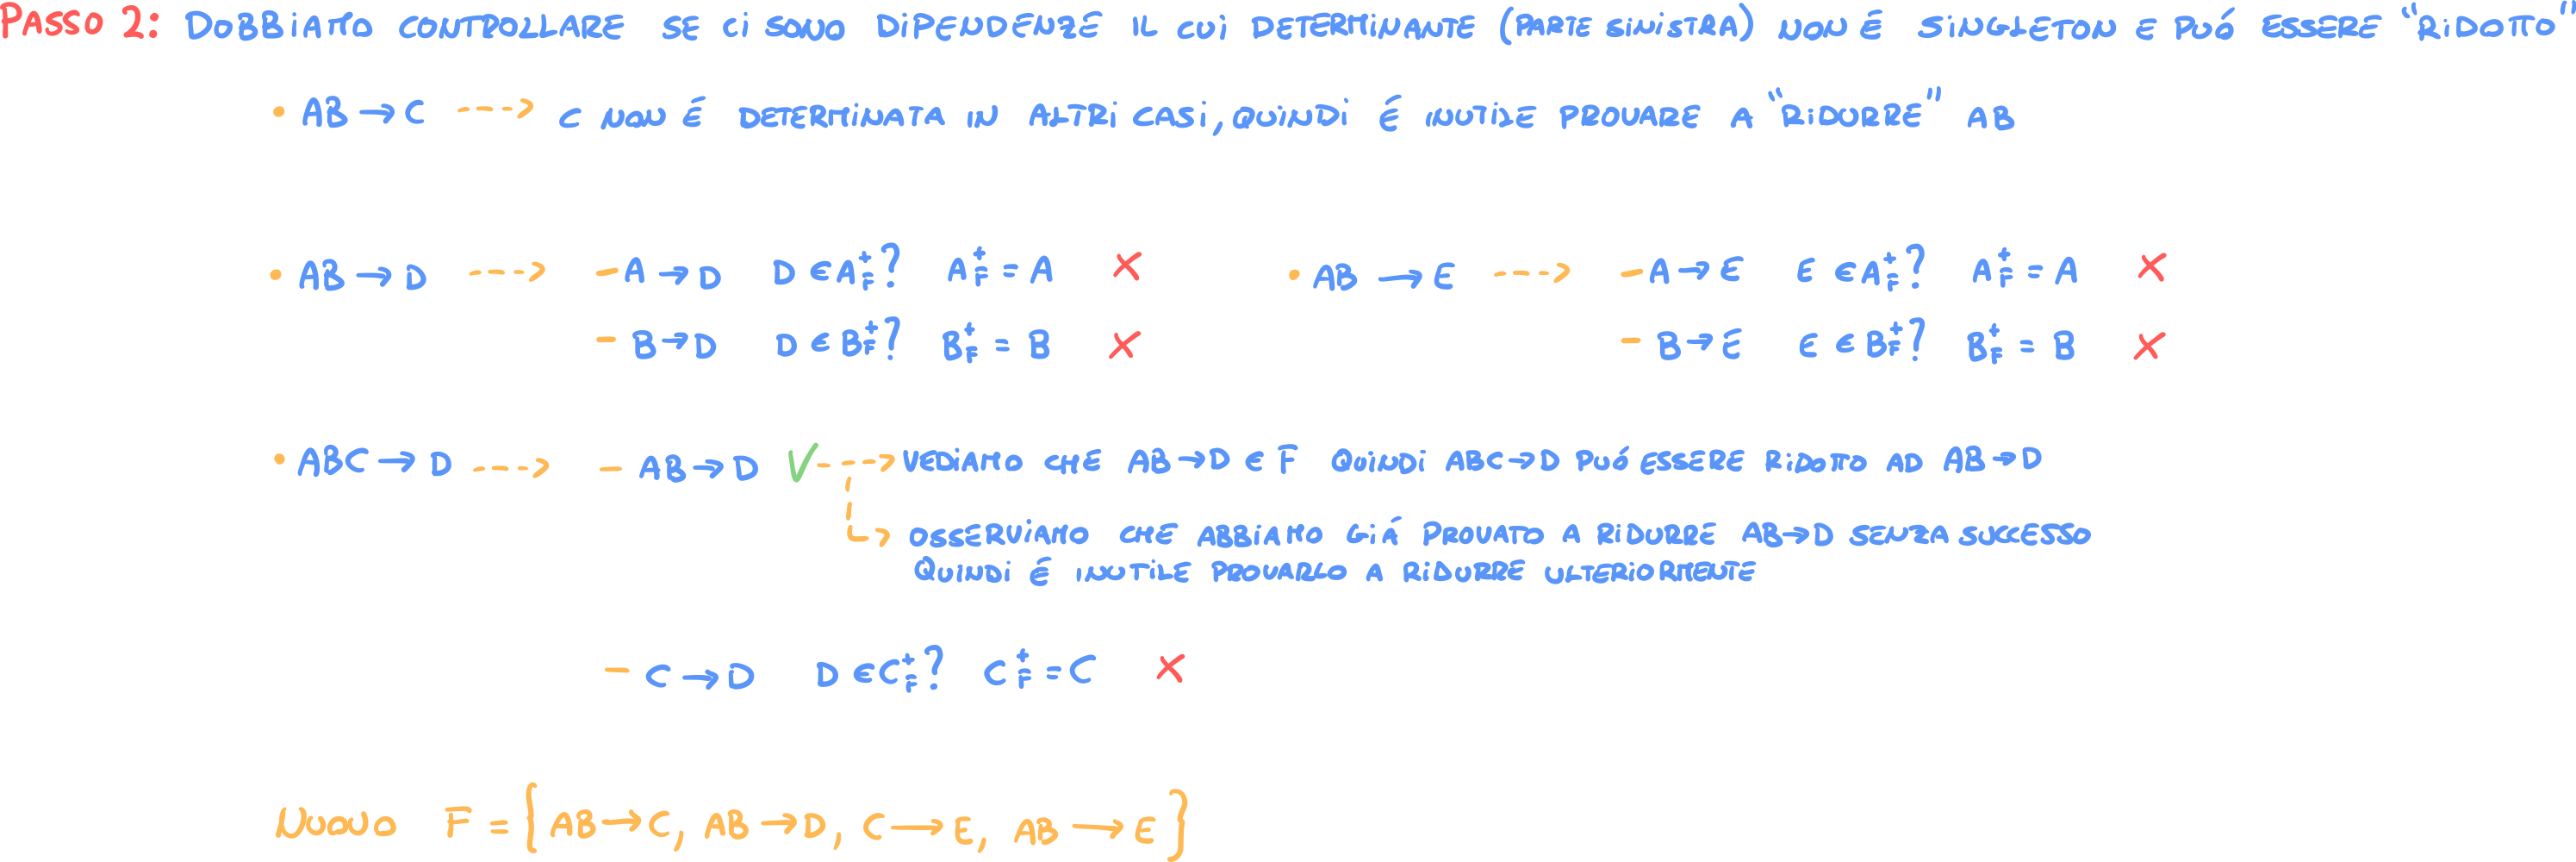 PASSO 2: DOBBIAMO CONTROLLARE SE CI SONO DIPENDENZE IL CUI DETERMINANTE (PARTE SINISTRA) NON É SINGLETON E PUÓ ESSERE "RIDOTTO"
• AB → C ---> C NON É DETERMINATA IN ALTRI CASI, QUINDI É INUTILE PROVARE A "RIDURRE" AB
• AB → D ---> – A → D D ∈ A⁺_F? A⁺_F = A ✗
– B → D D ∈ B⁺_F? B⁺_F = B ✗
• AB → E ---> – A → E E ∈ A⁺_F? A⁺_F = A ✗
– B → E E ∈ B⁺_F? B⁺_F = B ✗
• ABC → D ---> – AB → D ✓ ---> VEDIAMO CHE AB → D ∈ F QUINDI ABC → D PUÓ ESSERE RIDOTTO AD AB → D
OSSERVIAMO CHE ABBIAMO GIÁ PROVATO A RIDURRE AB → D SENZA SUCCESSO
QUINDI É INUTILE PROVARLO A RIDURRE ULTERIORMENTE
– C → D D ∈ C⁺_F? C⁺_F = C ✗
NUOVO F = { AB → C, AB → D, C → E, AB → E }